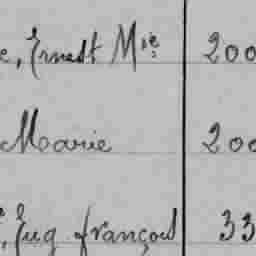 e, Ernest Mie 200
Marie 200
, Eug. françois 33